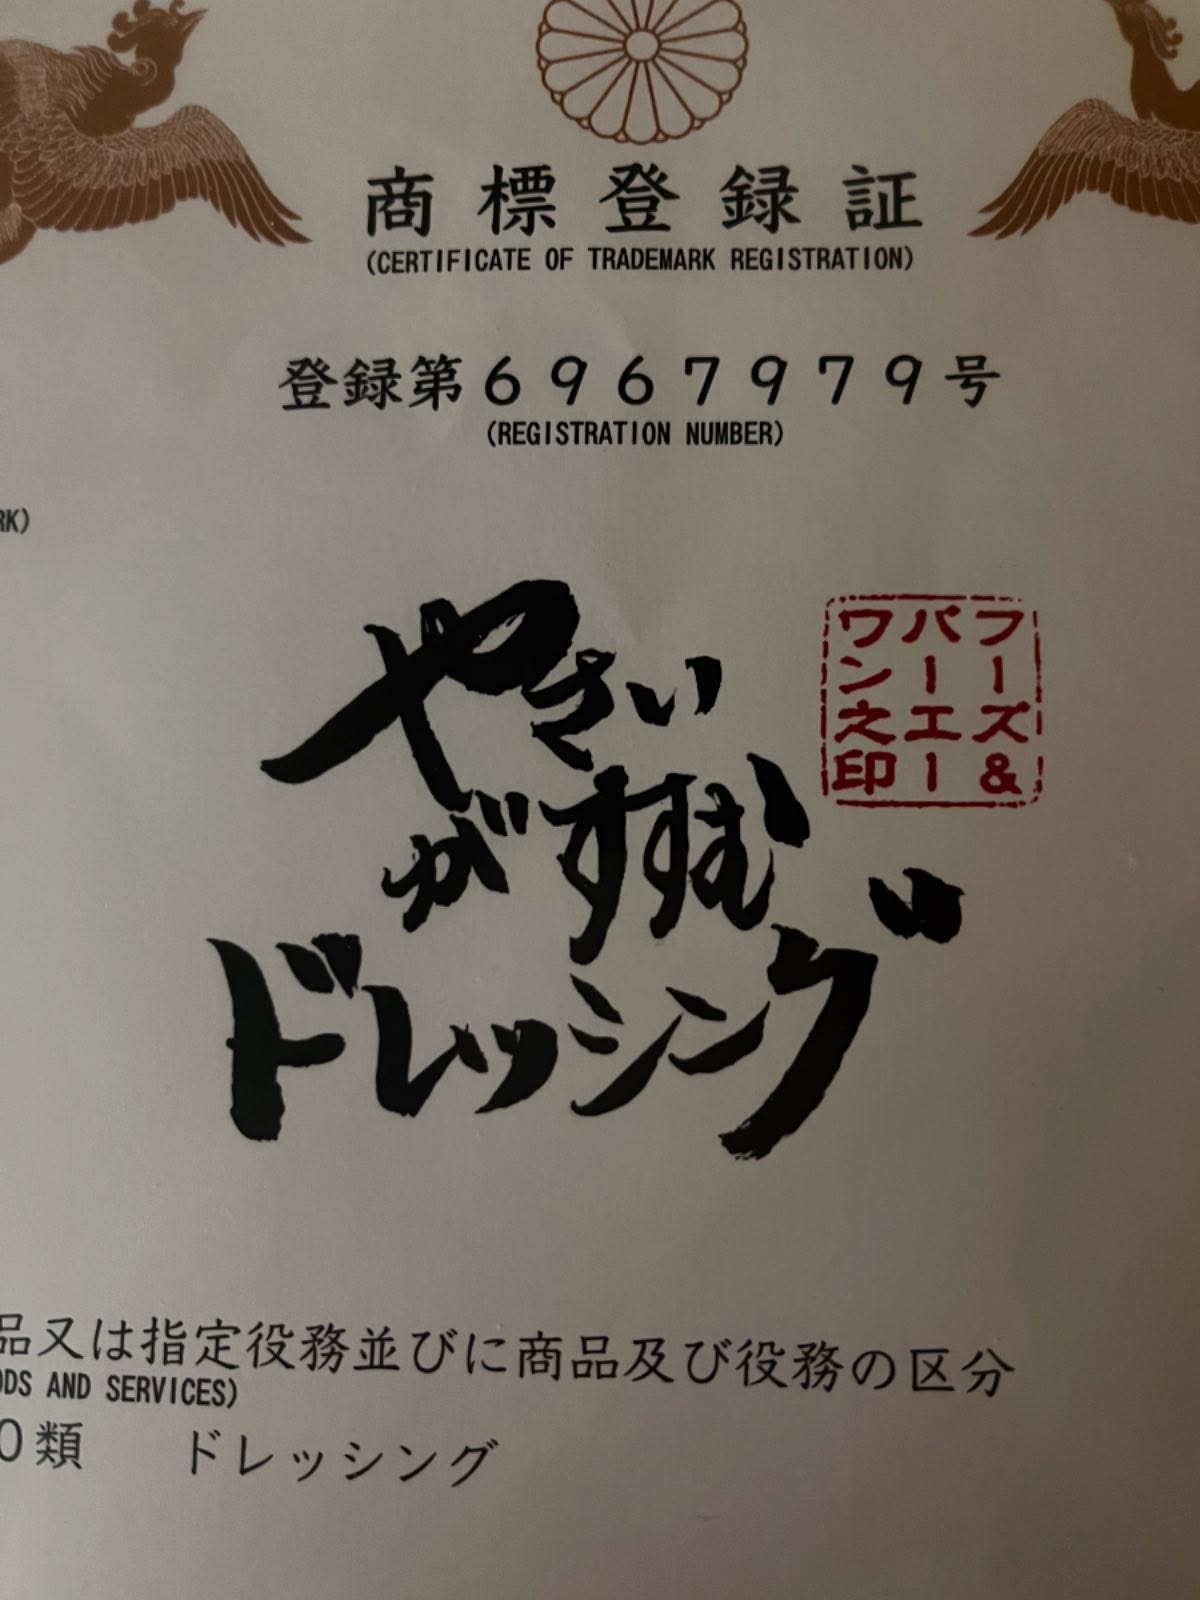 商標登録証
(CERTIFICATE OF TRADEMARK REGISTRATION)
登録第6967979号
(REGISTRATION NUMBER)
RK)
やさい
がすすむ
ドレッシング
フーズ&
パーエー
ワン之印
品又は指定役務並びに商品及び役務の区分
ODS AND SERVICES)
0類 ドレッシング